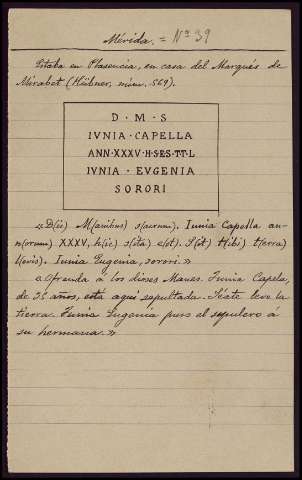 Mérida. = Nº 39
Estaba en Plasencia, en casa del Marqués de
Mirabel (Hübner, núm. 569).
D · M · S
IVNIA · CAPELLA
ANN · XXXV · H · S · ES · TT · L
IVNIA · EVGENIA
SORORI
«D(is) M(anibus) s(acrum). Iunia Capella an-
n(orum) XXXV, h(ic) s(ita) e(st). S(it) t(ibi) t(erra)
l(evis). Iunia Eugenia, sorori.»
«Ofrenda á los dioses Manes. Junia Capela,
de 35 años, está aquí sepultada. Séate leve la
tierra. Junia Eugenia puso el sepulcro á
su hermana.»